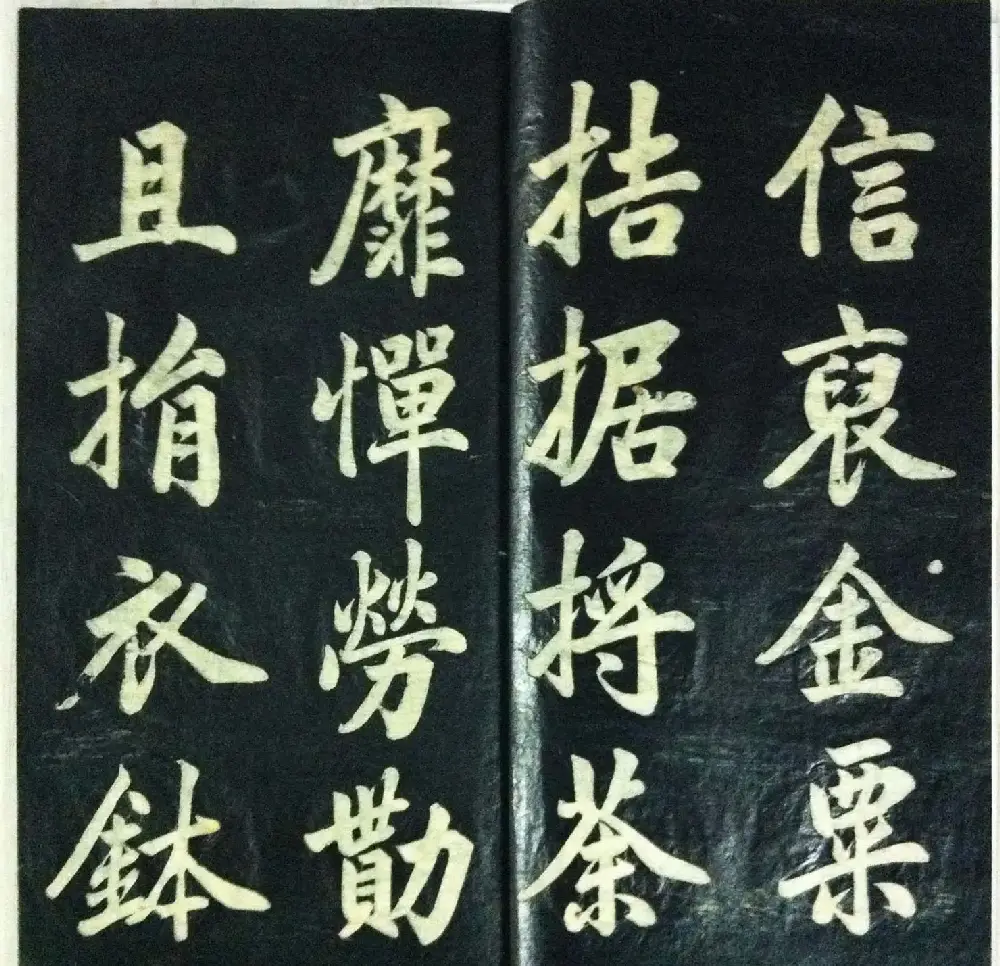 信裒金粟
拮据捋荼
靡憚勞勩
且捐衣鉢